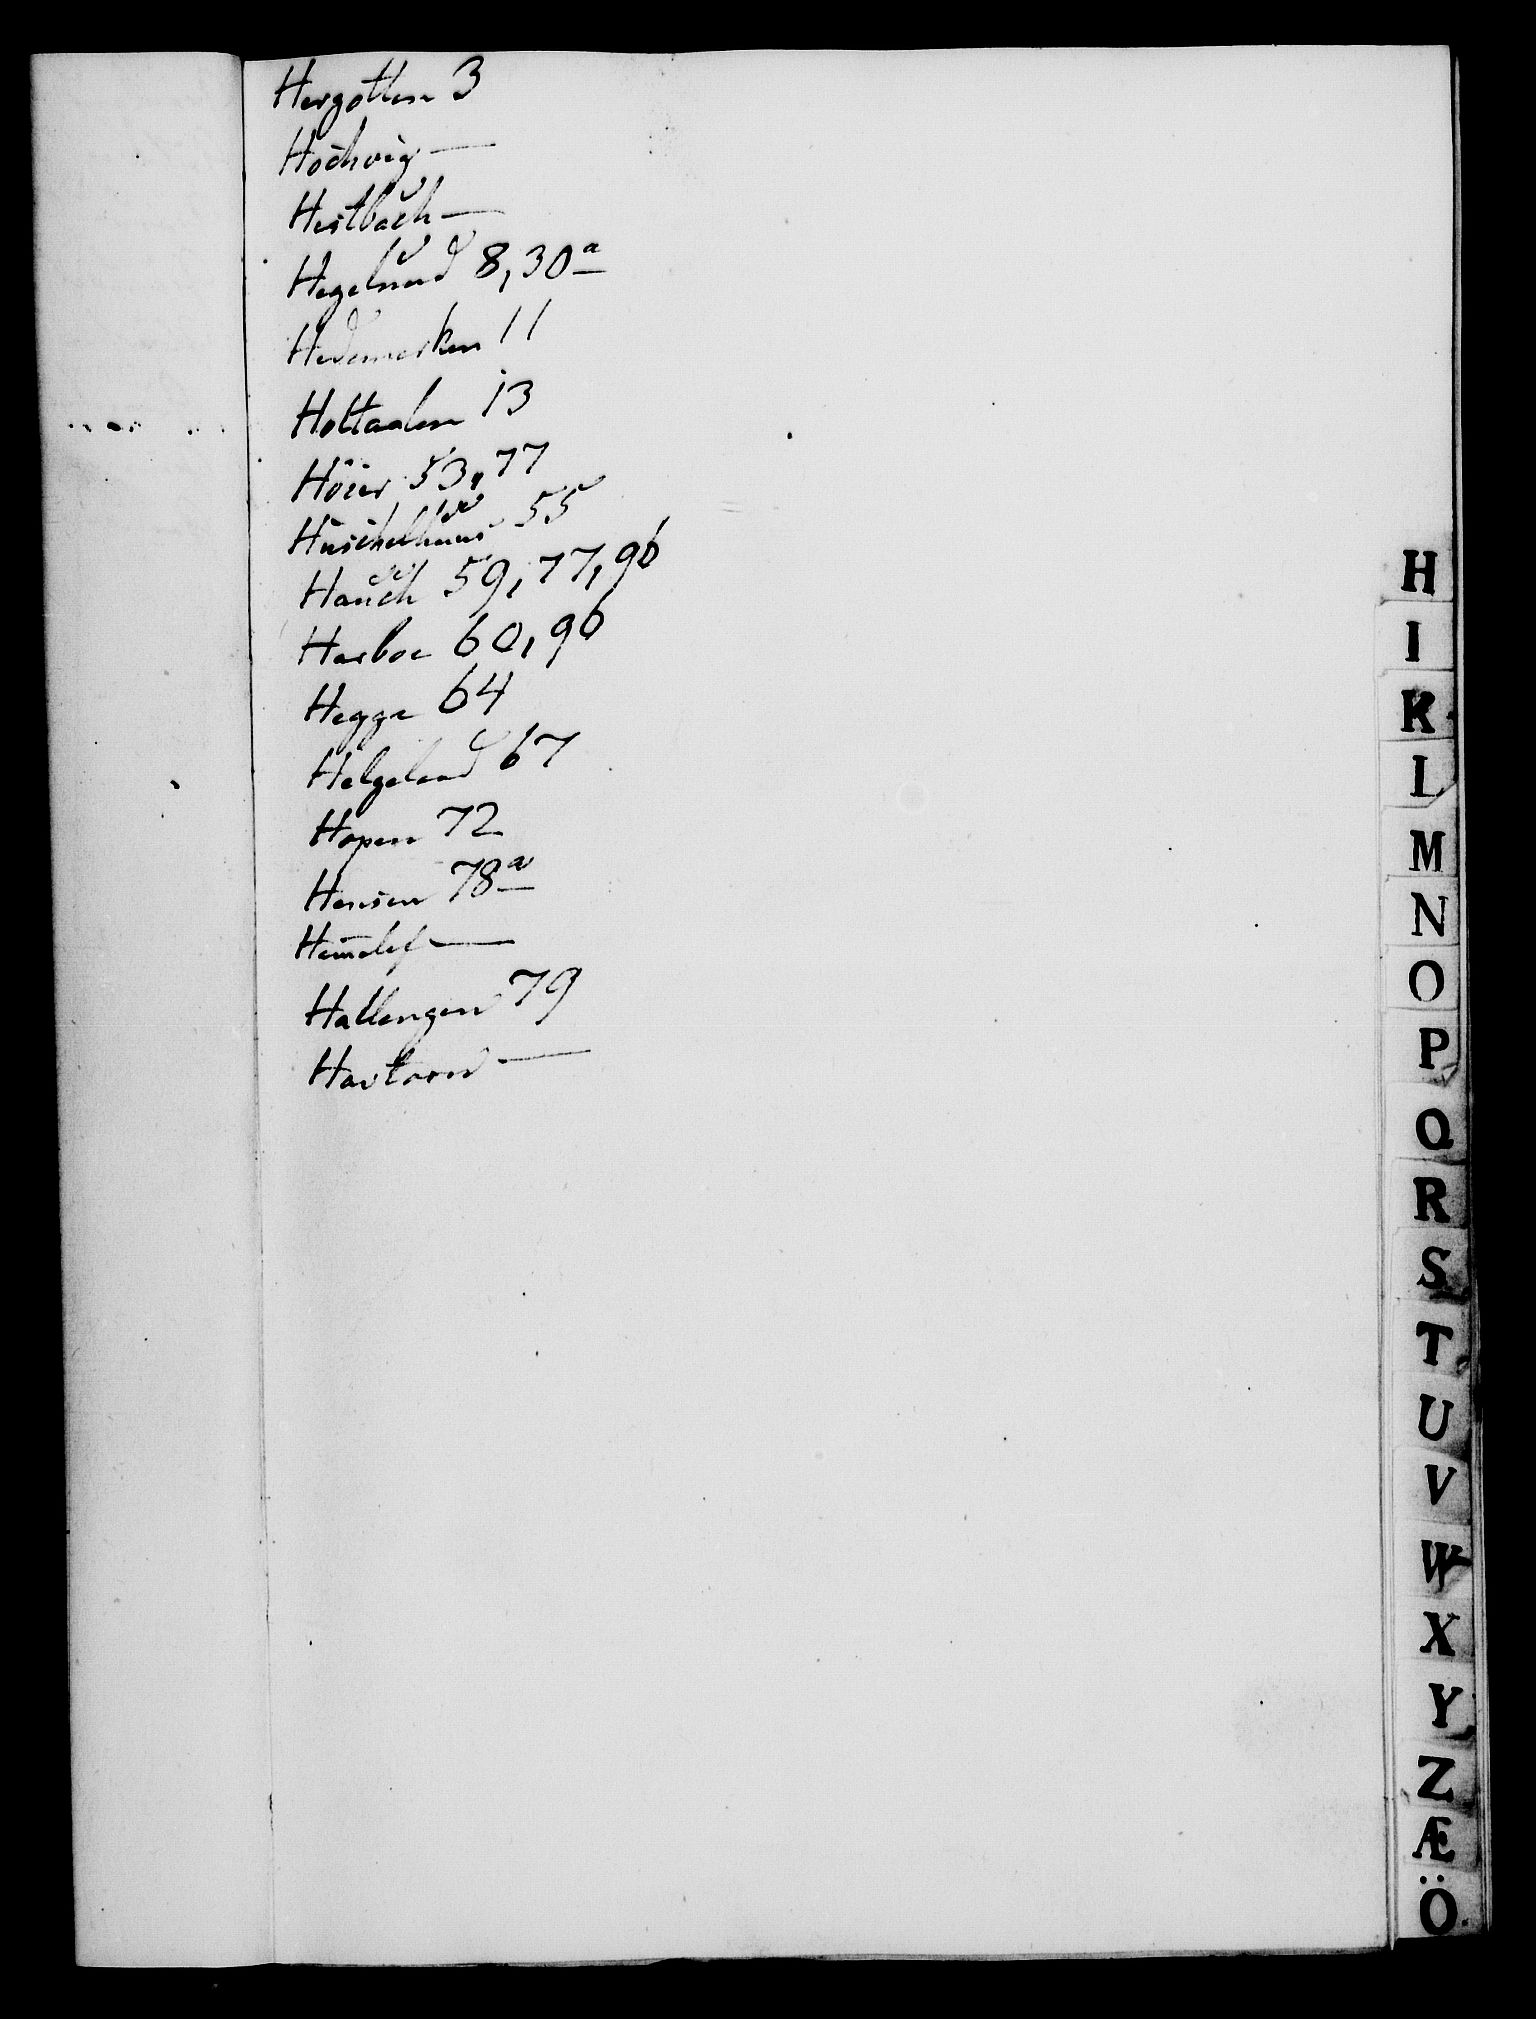 Hergotten 3
Hochvig —
Hestbech —
Hegelund 8, 30a
Hedemarken 11
Holtaalen 13
Höier 53, 77
Huschelhuus 55
Hauch 59, 77, 96
Harboe 60, 96
Hegge 64
Helgeland 67
Hopen 72
Hensen 78a
—
Hallengen 79
—
H
I
K
L
M
N
O
P
Q
R
S
T
U
V
W
X
Y
Z
Æ
Ö